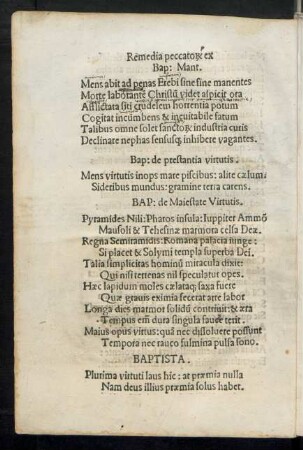 Remedia peccatoꝝ ex
Bap: Mant.
Mens abit ad penas Erebi sine fine manentes
Morte laborante Christũ videt aspicit ora
Afflictata siti crudelem horrentia potum
Cogitat incumbens & inevitabile fatum
Talibus omne solet sanctoꝝ industria curis
Declinare nephas sensusq; inhibere vagantes.
Bap: de prestantia virtutis.
Mens virtutis inops mare piscibus: alite cælum:
Sideribus mundus: gramine terra carens.
BAP: de Maiestate Virtutis.
Pyramides Nili: Pharos insula: Iuppiter Ammõ
Mausoli & Tehesinæ marmora celsa Deæ.
Regna Semiramidis: Romana palacia iunge:
Si placet & Solymi templa superba Dei.
Talia simplicitas hominũ miracula dixit:
Qui nisi terrenas nil speculatur opes.
Hæc lapidum moles cælataq; saxa fuere
Quæ gravis eximia fecerat arte labor
Longa dies marmor solidũ contrivit: & æra
Tempus em̃ dura singula fauce terit.
Maius opus virtus: quã nec dissolvere possunt
Tempora nec rauco fulmina pulsa sono.
BAPTISTA.
Plurima virtuti laus hic: at præmia nulla
Nam deus illius præmia solus habet.